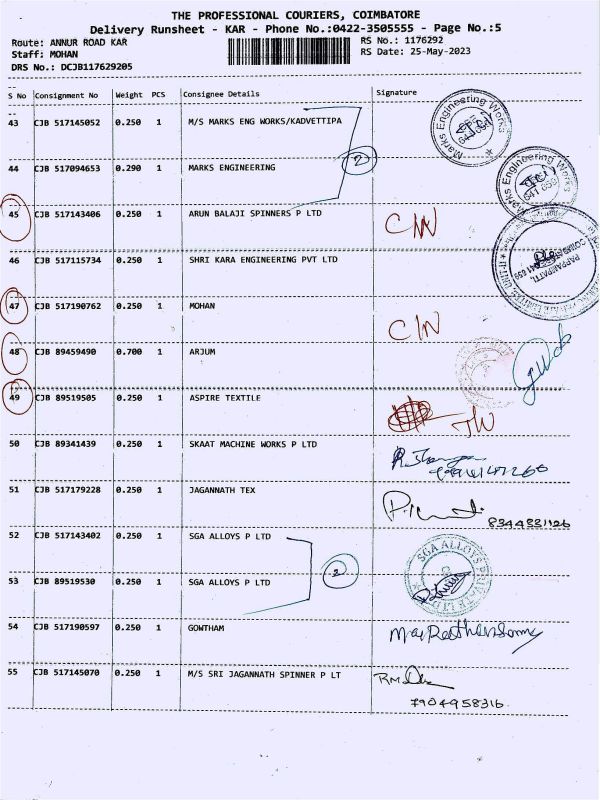 THE PROFESSIONAL COURIERS, COIMBATORE
Delivery Runsheet - KAR - Phone No.:0422-3505555 - Page No.:5
Route: ANNUR ROAD KAR
RS No.: 1176292
Staff: MOHAN
RS Date: 25-May-2023
DRS No.: DCJB117629205
S No Consignment No Weight PCS Consignee Details Signature
43 CJB 517145052 0.250 1 M/S MARKS ENG WORKS/KADVETTIPA
Marks Engineering Works
2
44 CJB 517094653 0.290 1 MARKS ENGINEERING
Marks Engineering Works
641 659
45 CJB 517143406 0.250 1 ARUN BALAJI SPINNERS P LTD
46 CJB 517115734 0.250 1 SHRI KARA ENGINEERING PVT LTD
47 CJB 517190762 0.250 1 MOHAN
C/N
48 CJB 89459490 0.700 1 ARJUM
49 CJB 89519505 0.250 1 ASPIRE TEXTILE
50 CJB 89341439 0.250 1 SKAAT MACHINE WORKS P LTD
51 CJB 517179228 0.250 1 JAGANNATH TEX
8344881126
52 CJB 517143402 0.250 1 SGA ALLOYS P LTD
SGA ALLOYS PRIVATE LTD
2
53 CJB 89519530 0.250 1 SGA ALLOYS P LTD
54 CJB 517190597 0.250 1 GOWTHAM
55 CJB 517145070 0.250 1 M/S SRI JAGANNATH SPINNER P LT
7904958316